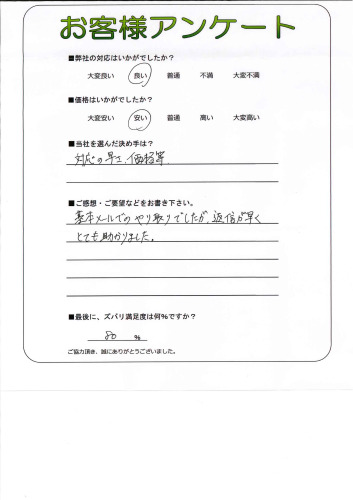 お客様アンケート
■弊社の対応はいかがでしたか？
大変良い 良い 普通 不満 大変不満
■価格はいかがでしたか？
大変安い 安い 普通 高い 大変高い
■当社を選んだ決め手は？
対応の早さ、価格等
■ご感想・ご要望などをお書き下さい。
基本メールでのやり取りでしたが、返信が早く
とても助かりました。
■最後に、ズバリ満足度は何%ですか？
80 %
ご協力頂き、誠にありがとうございました。